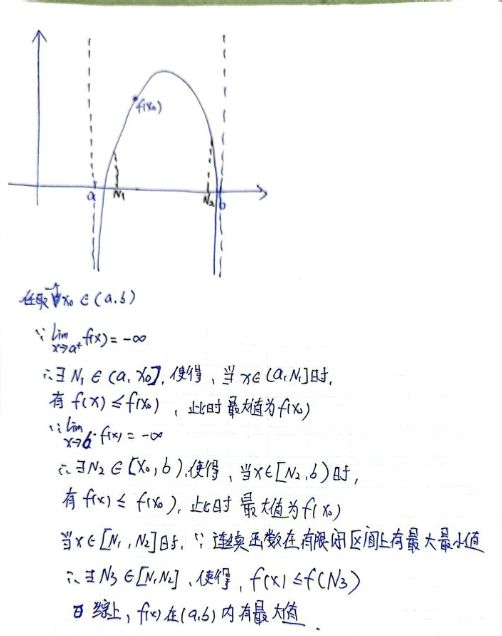 f(x₀)
a N₁ N₂ b
任取一x₀∈(a,b)
∵ lim x→a⁺ f(x)=-∞
∴∃N₁∈(a,x₀],使得,当x∈(a,N₁]时,
有f(x)≤f(x₀),此时最大值为f(x₀)
∵ lim x→b⁻ f(x)=-∞
∴∃N₂∈[x₀,b),使得,当x∈[N₂,b)时,
有f(x)≤f(x₀),此时最大值为f(x₀)
当x∈[N₁,N₂]时,∵连续函数在有限闭区间上有最大最小值
∴∃N₃∈[N₁,N₂],使得,f(x)≤f(N₃)
综上,f(x)在(a,b)内有最大值.